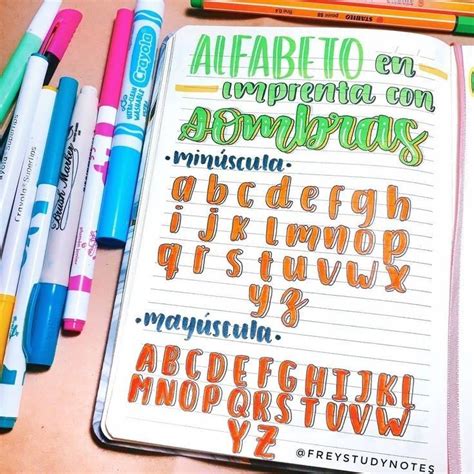 ALFABETO en
imprenta con
sombras
•minúscula•
a b c d e f g h
i j k l m n o p
q r s t u v w x
y z
•mayúscula•
A B C D E F G H I J K L
M N O P Q R S T U V W X
Y Z
@FREYSTUDYNOTES
Crayola
Crayola SuperTips
Brush Marker
STABILO